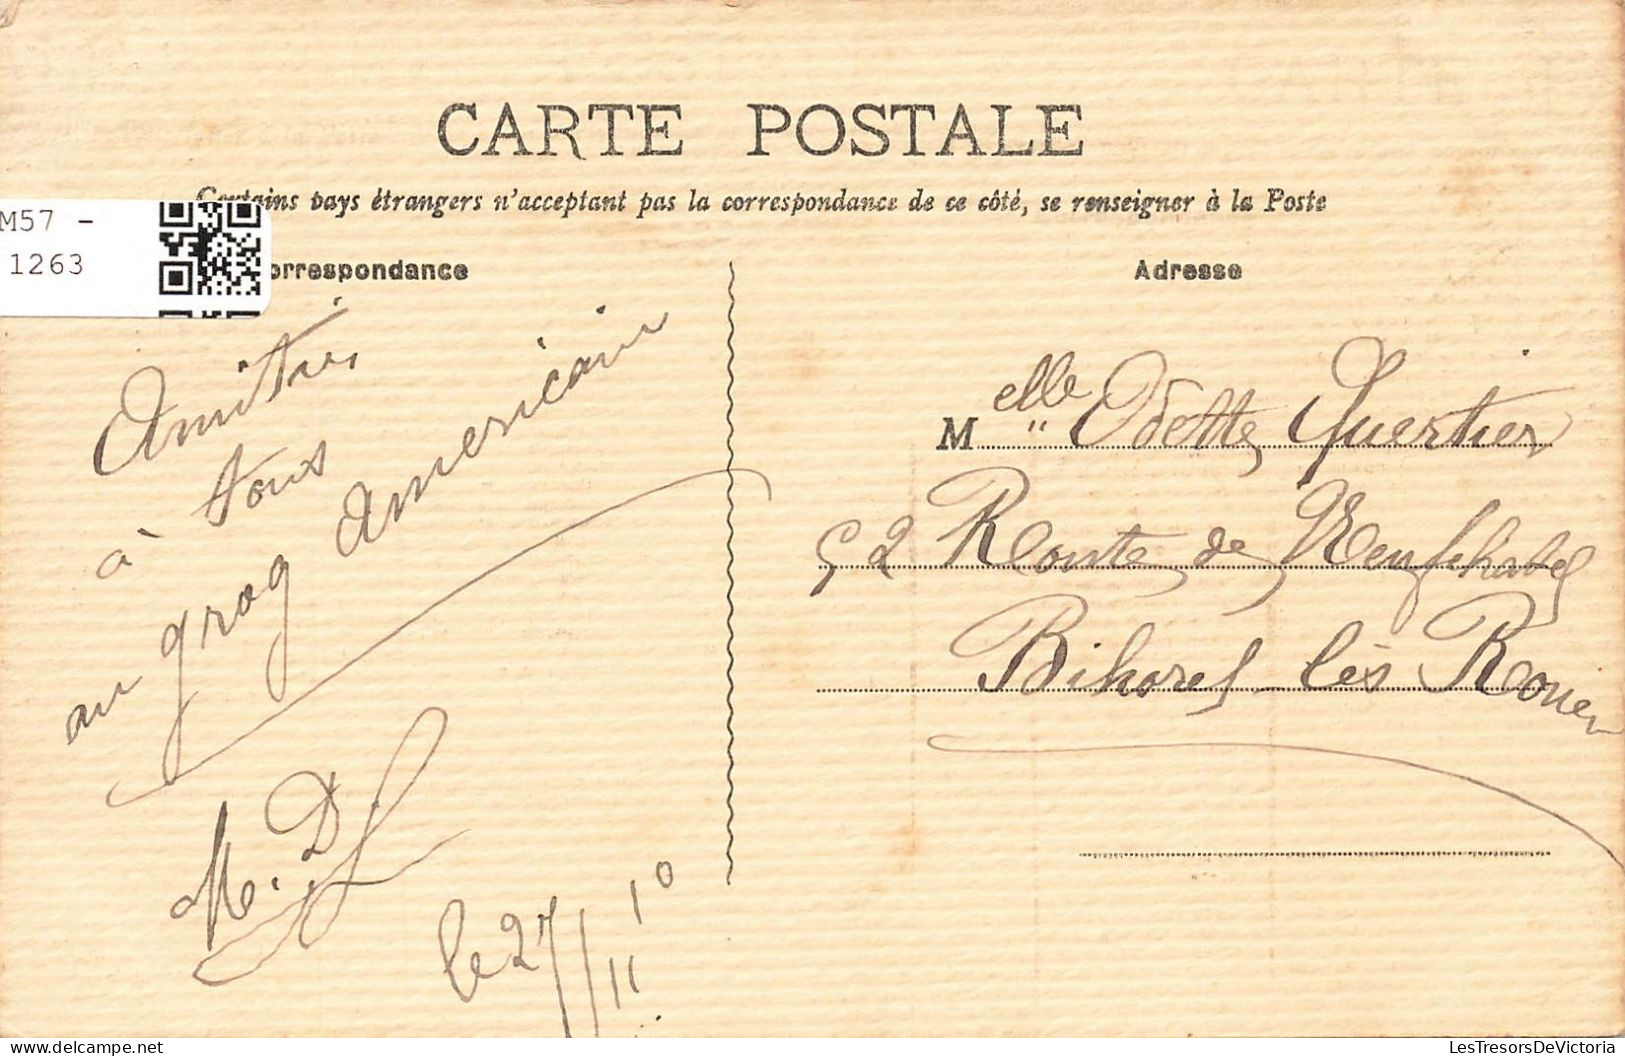 CARTE POSTALE
Certains pays étrangers n'acceptant pas la correspondance de ce côté, se renseigner à la Poste
M57 -
1263
orrespondance
Adresse
Amitiés
à tous
au grog américain
M. D.
le 27/11 10
Melle Odette Quertier
52 Route de Neufchatel
Bihorel-lès Rouen
delcampe.net
LesTresorsDeVictoria